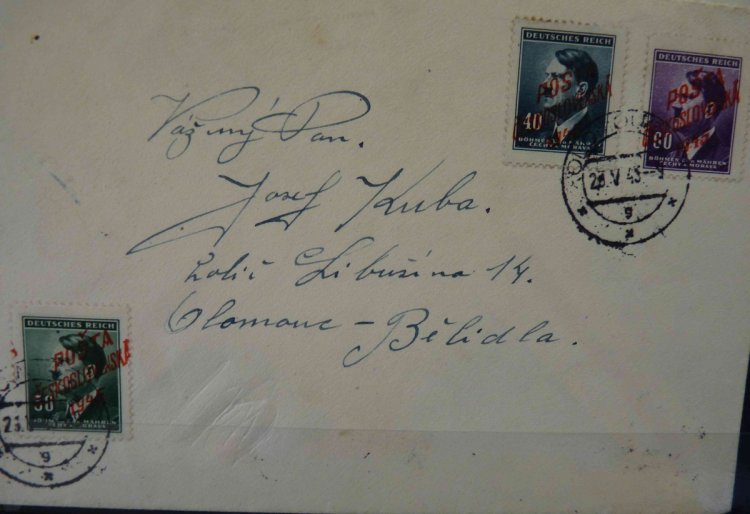 DEUTSCHES REICH
POŠTA
ČESKOSLOVENSKÁ
40
BÖHMEN u. MÄHREN
ČECHY a MORAVA
DEUTSCHES REICH
POŠTA
ČESKOSLOVENSKÁ
1945
60
BÖHMEN u. MÄHREN
ČECHY a MORAVA
OLOMOUC
23.V 45
9
Vážený Pan.
Josef Kuba.
holič Libušina 14.
Olomouc – Bělidla.
DEUTSCHES REICH
POŠTA
ČESKOSLOVENSKÁ
1945
50
BÖHMEN u. MÄHREN
ČECHY a MORAVA
23.V
9